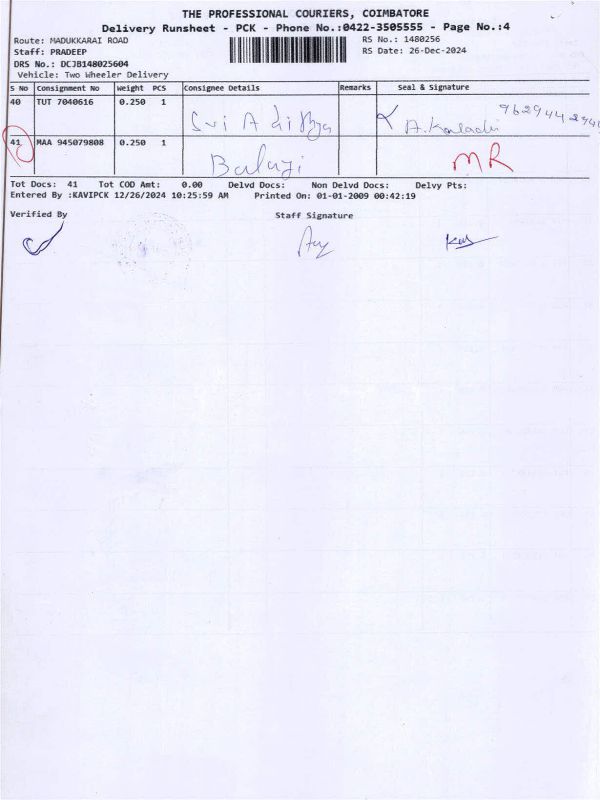 THE PROFESSIONAL COURIERS, COIMBATORE
Delivery Runsheet - PCK - Phone No.:0422-3505555 - Page No.:4
Route: MADUKKARAI ROAD
RS No.: 1480256
Staff: PRADEEP
RS Date: 26-Dec-2024
DRS No.: DCJB148025604
Vehicle: Two Wheeler Delivery
S No Consignment No Weight PCS Consignee Details Remarks Seal & Signature
40 TUT 7040616 0.250 1 Sri Adithya
41 MAA 945079808 0.250 1 Balaji MR
Tot Docs: 41 Tot COD Amt: 0.00 Delvd Docs: Non Delvd Docs: Delvy Pts:
Entered By :KAVIPCK 12/26/2024 10:25:59 AM Printed On: 01-01-2009 00:42:19
Verified By Staff Signature